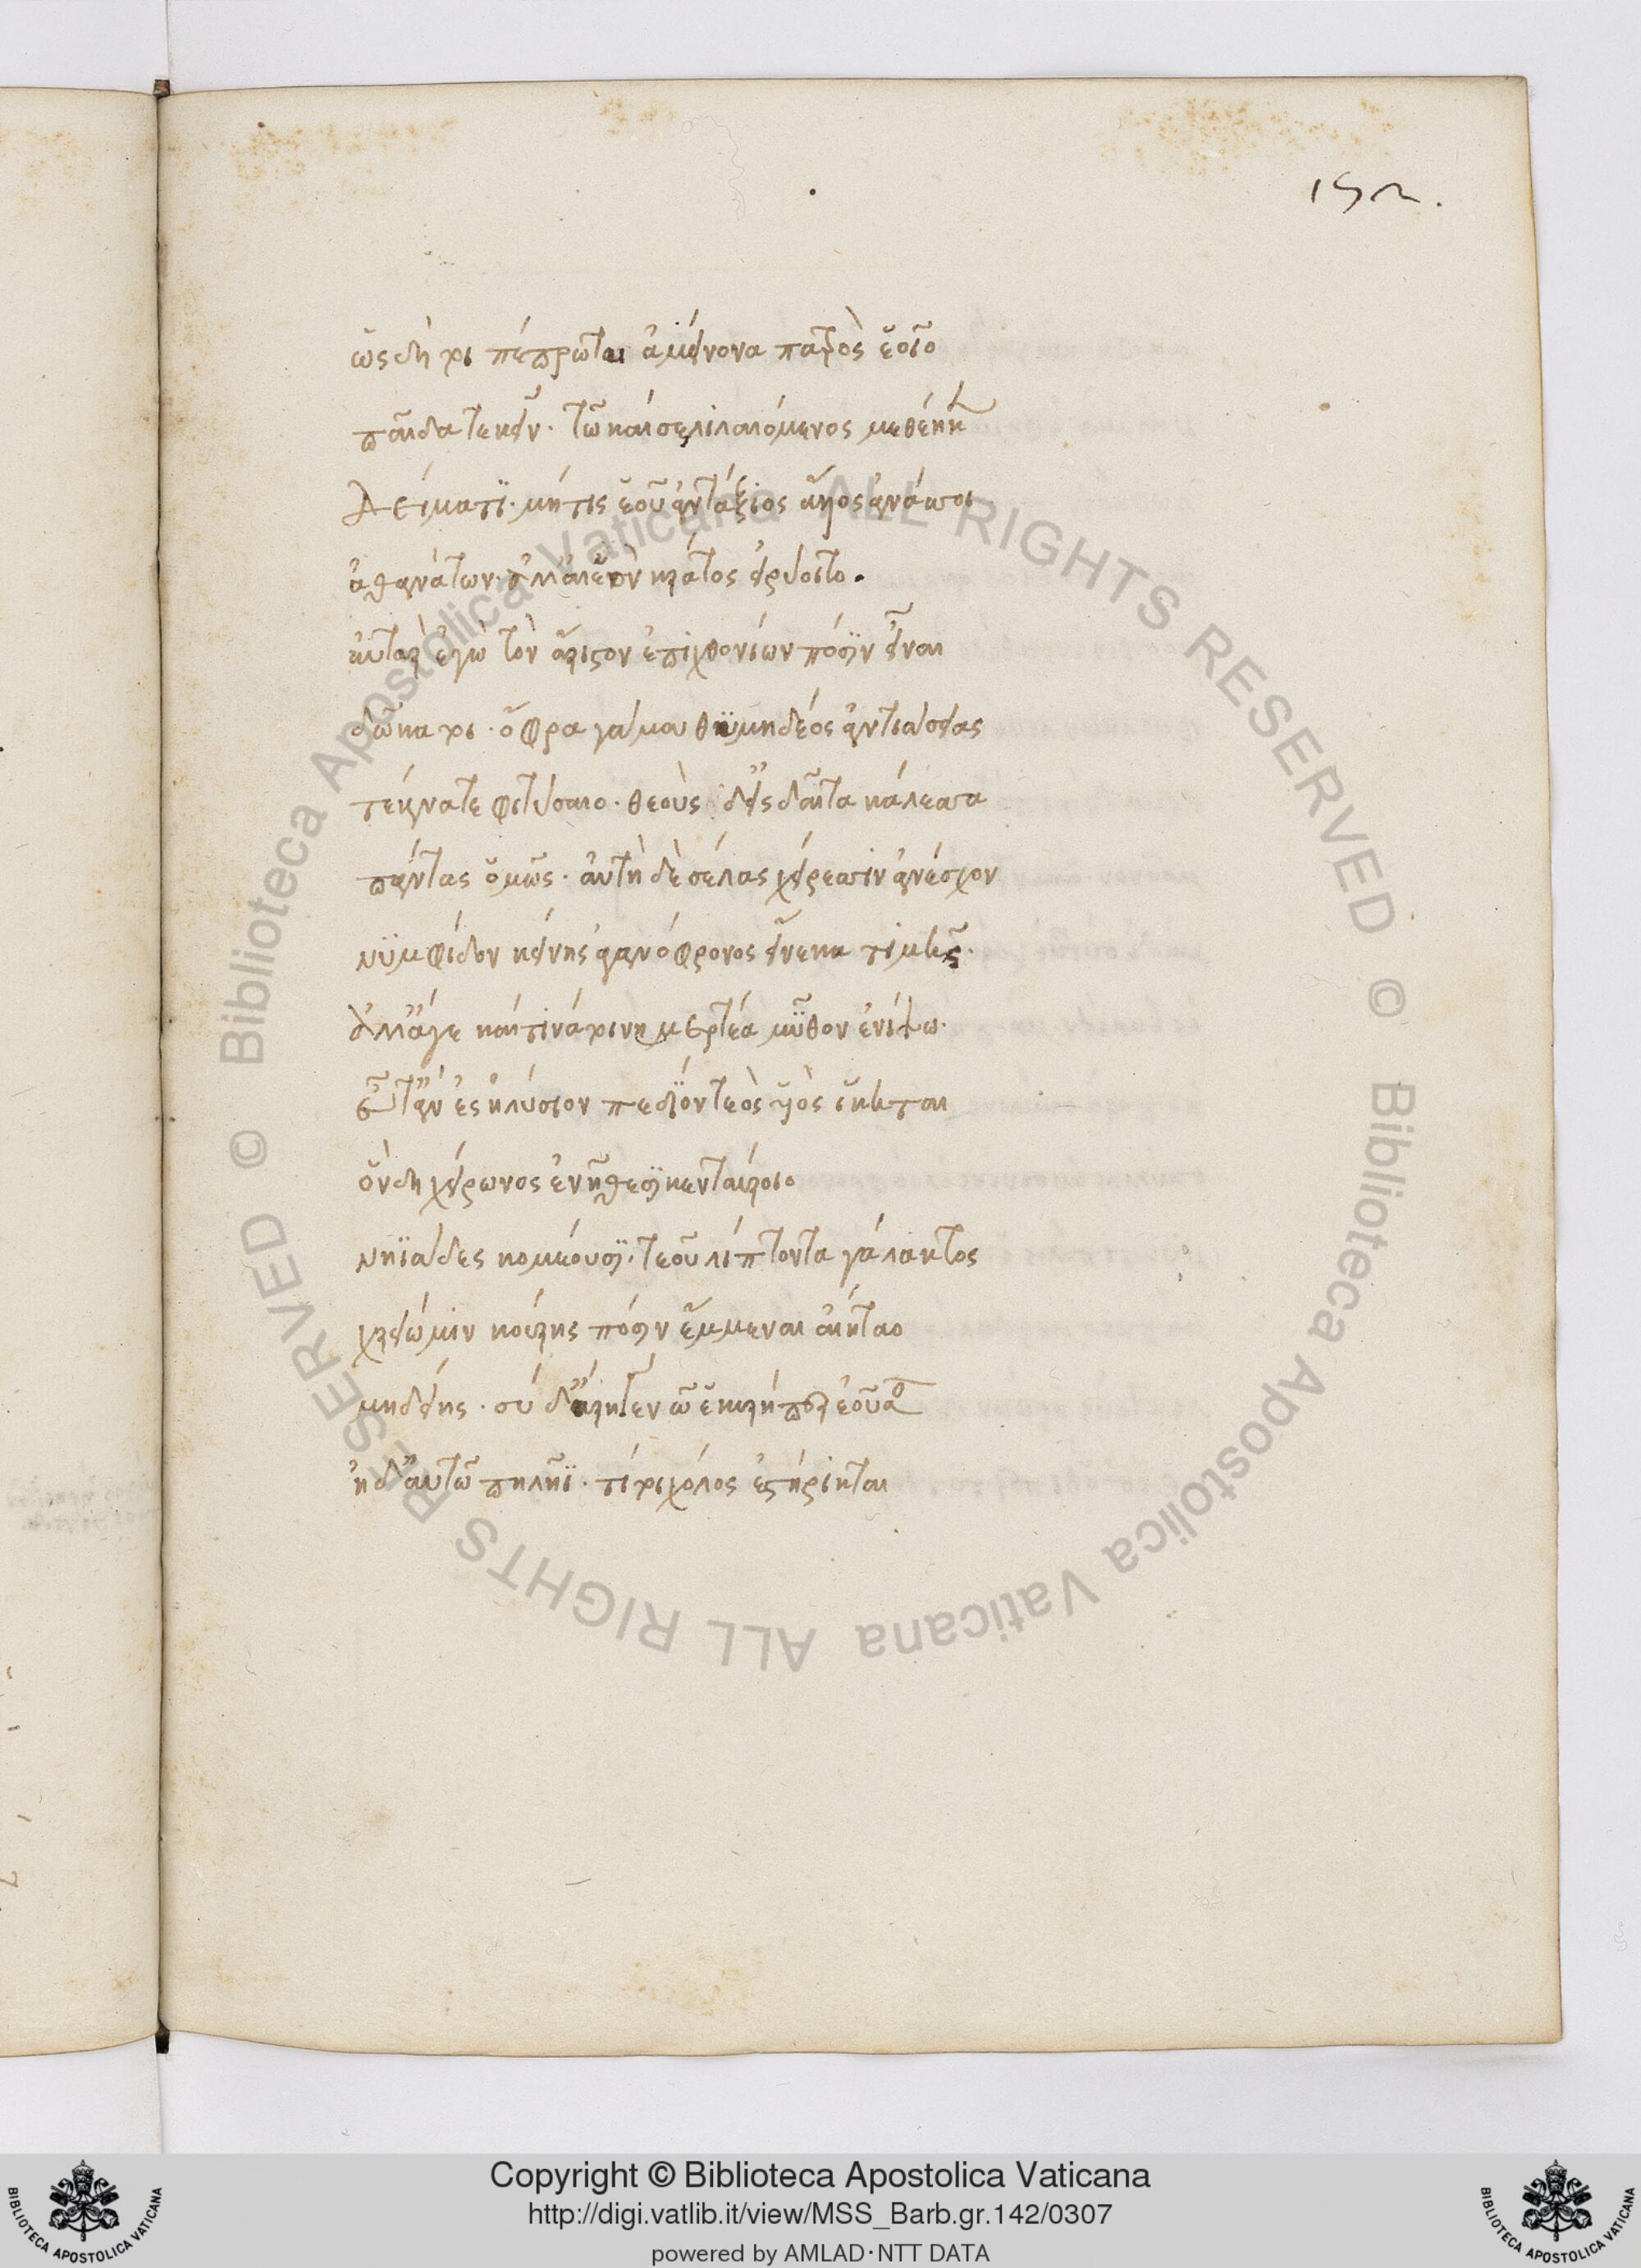 152.
ὡς δή τοι πέπρωται ἀμείνονα πατρὸς ἑοῖο
παῖδα τεκεῖν· τῶ καί σε λιλαιόμενος μεθέηκε
Δείματι· μή τις ἑοῦ ἀντάξιος ἄλλος ἀνάσσοι
ἀθανάτων· ἀλλ' αἰὲν ἑὸν κράτος εἰρύοιτο.
αὐτὰρ ἐγὼ τὸν ἄριστον ἐπιχθονίων πόσιν εἶναι
δῶκά τοι· ὄφρα γάμου θυμηδέος ἀντιάσειας
τέκνα τε φιτύσαιο· θεοὺς δ' εἰς δαῖτα κάλεσσα
πάντας ὁμῶς· αὐτὴ δὲ σέλας χείρεσσιν ἀνέσχον
νυμφίδιον κείνης ἀγανόφρονος εἵνεκα τιμῆς·
ἀλλ' ἄγε καί τινά τοι νημερτέα μῦθον ἐνίψω·
εὖτ' ἂν ἐς ἠλύσιον πεδίον τεὸς υἱὸς ἵκηται
ὃν δὴ χείρωνος ἐν ἤθεσι κενταύροιο
νηϊάδες κομέουσι· τεοῦ λίπτοντα γάλακτος
χρειώ μιν κούρης πόσιν ἔμμεναι αἰήταο
μηδείης· σύ δ' ἄρηγε νυῶ ἑκυρή περ ἐοῦσα
ἠδ' αὐτῶ πηλῆϊ· τί τοι χόλος ἐστήρικται
Copyright © Biblioteca Apostolica Vaticana
http://digi.vatlib.it/view/MSS_Barb.gr.142/0307
powered by AMLAD·NTT DATA
BIBLIOTECA APOSTOLICA VATICANA
BIBLIOTECA APOSTOLICA VATICANA
© Biblioteca Apostolica Vaticana ALL RIGHTS RESERVED © Biblioteca Apostolica Vaticana ALL RIGHTS RESERVED